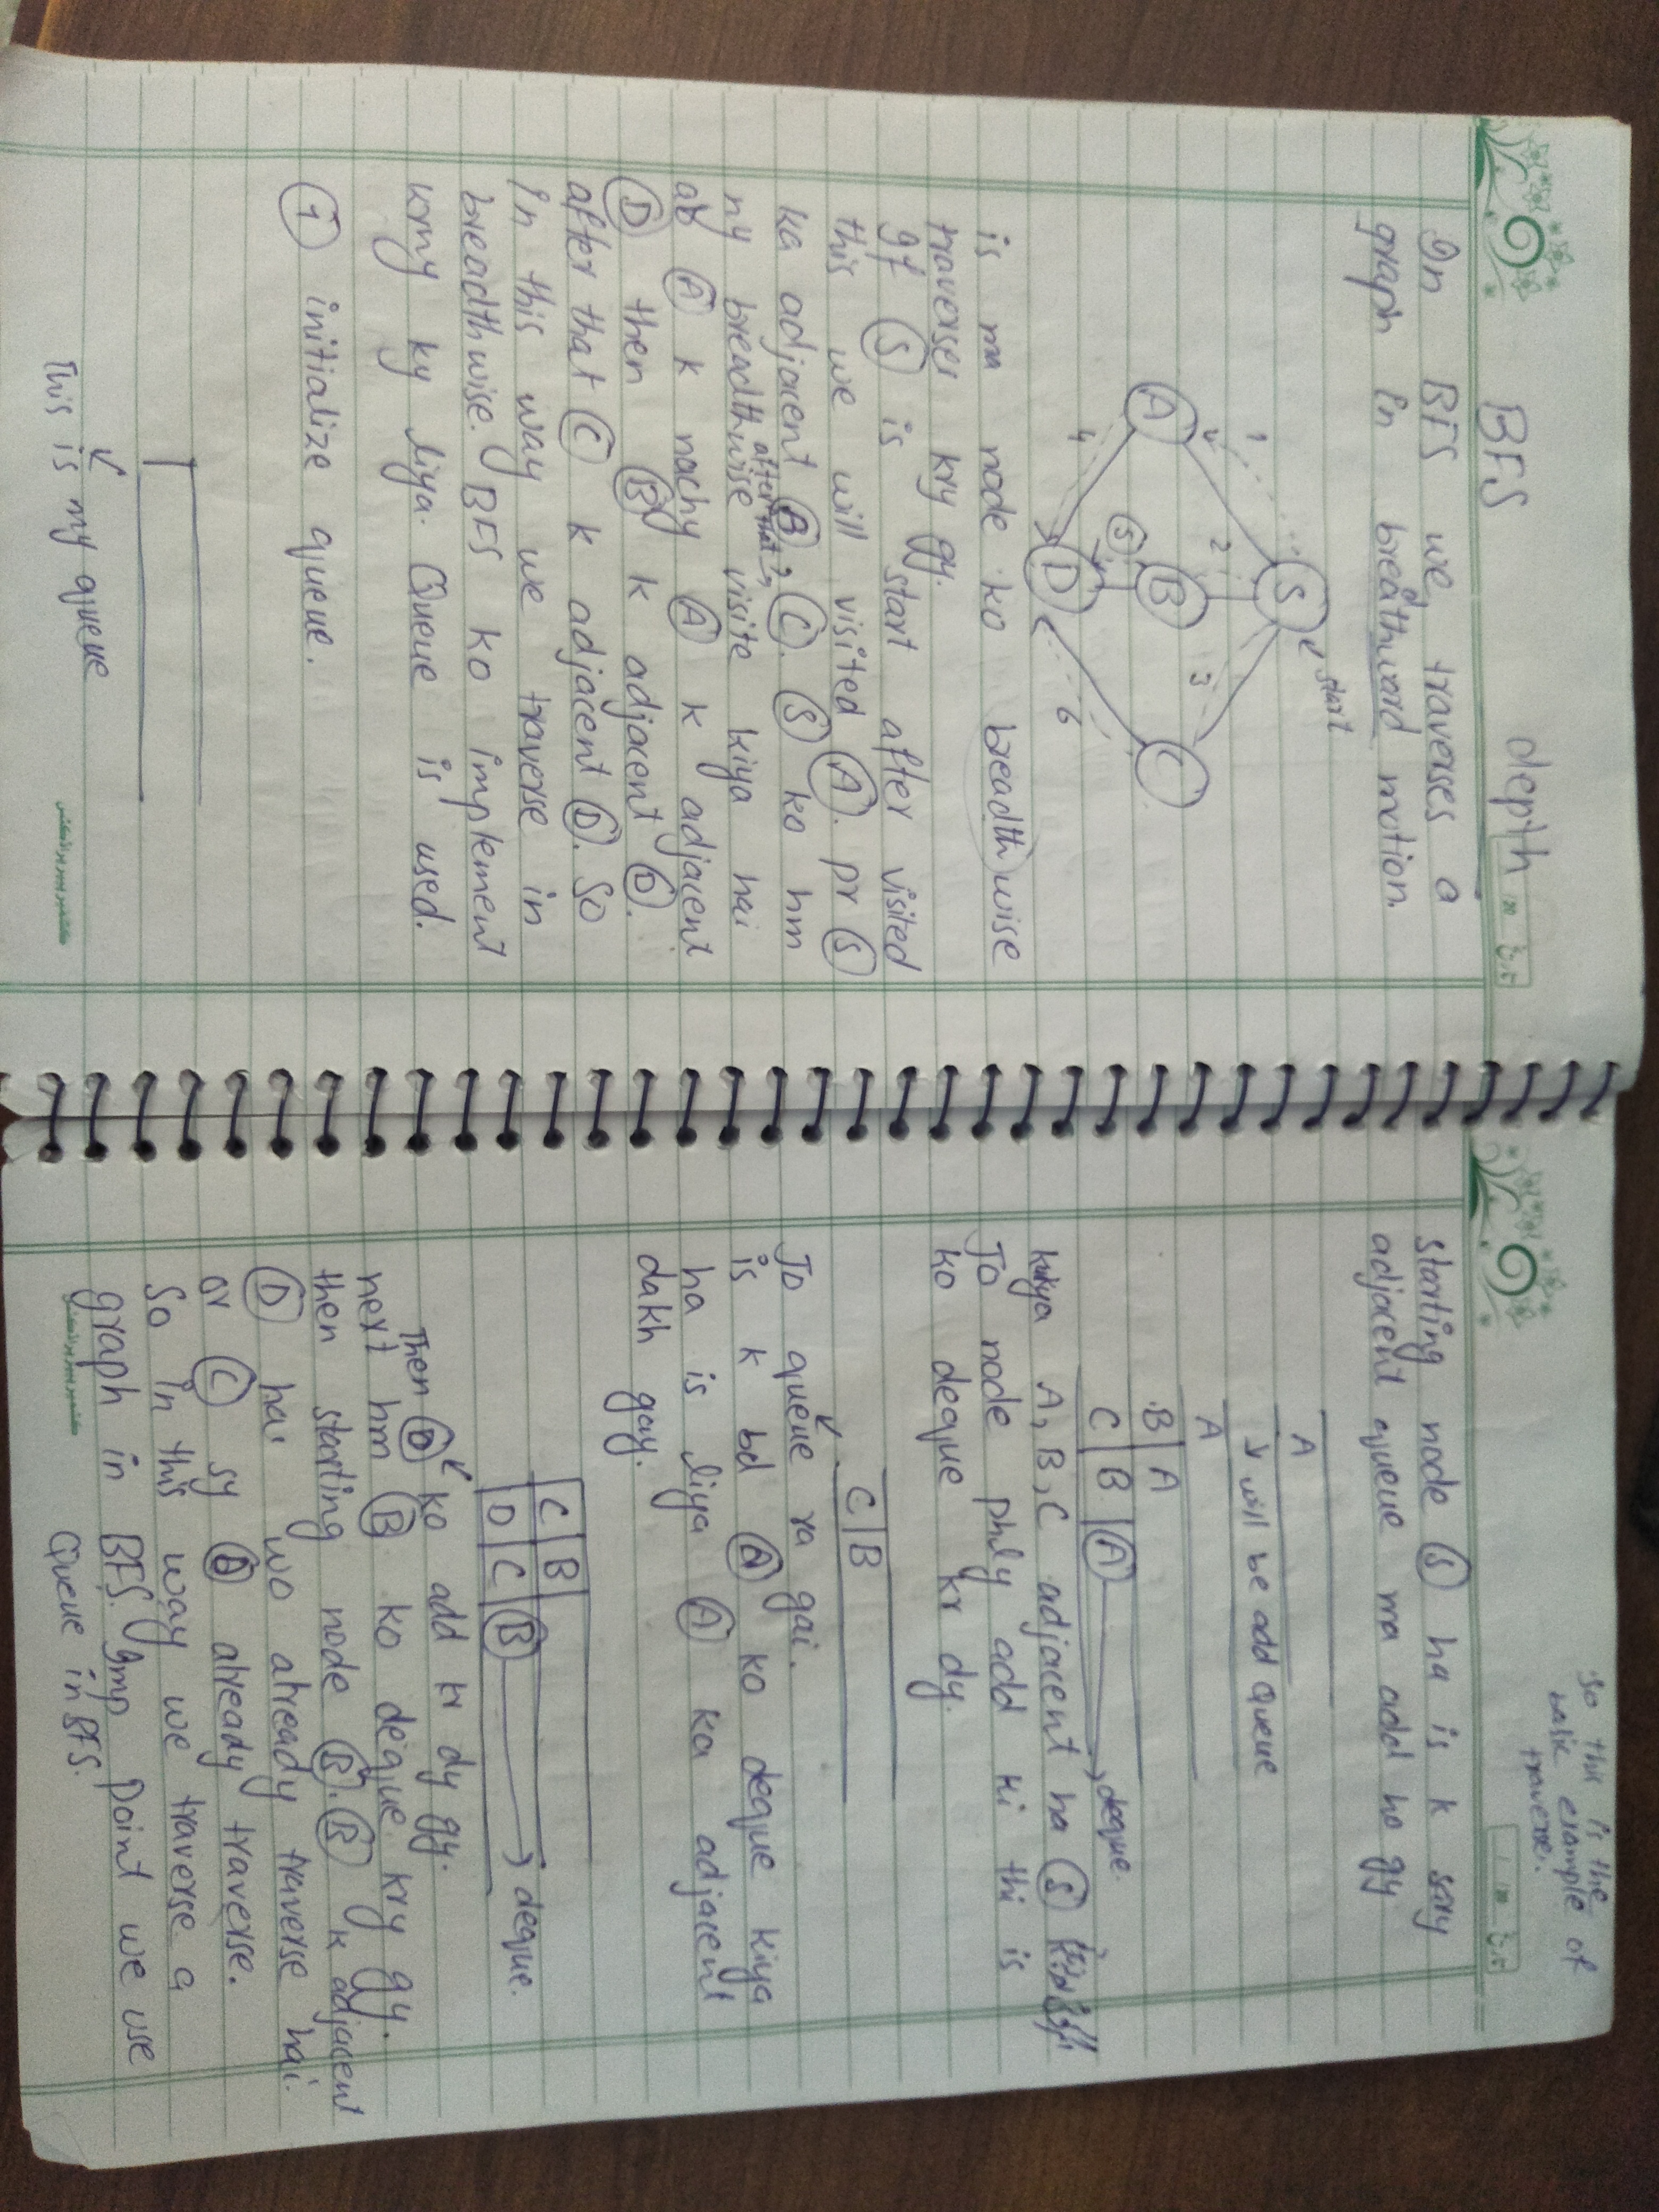 depth
BFS
In BFS we traverses a
graph in breathward motion.
start
S
1
2
3
A
B
C
5
4
6
D
is ma node ko breadthwise
traverses kry gy.
if S is start after visited
this we will visited A. pr S
ka adjacent B, C. S ko hm
after that
ny breadthwise visite kiya hai
ab A k nachy A k adjacent
D then B k adjacent D.
after that C k adjacent D. So
in this way we traverse in
breadthwise. BFS ko implement
krny ky liya Queue is used.
1 initialize queue.
This is my queue
So this is the
basic example of
traverse.
starting node S ha is k sary
adjacent queue ma add ho gy
A
will be add queue
A
B A
C B A deque.
kukiya A, B, C adjacent ha S
To node phly add ki thi is
ko deque kr dy.
C B
To queue ra gai.
is k bd A ko deque kiya
ha is liya A ka adjacent
dakh gay.
C B
D C B deque.
Then D ko add kr dy gy.
next hm B ko deque kry gy.
then starting node B. B k adjacent
D hai wo already traverse hai.
or C sy D already traverse.
So in this way we traverse a
graph in BFS. Imp Point we use
Queue in BFS.